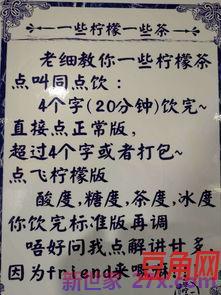 一些柠檬一些茶
老细教你一些柠檬茶
点叫同点饮:
4个字(20分钟)饮完~
直接点正常版,
超过4个字或者打包~
点飞柠檬版
酸度,糖度,茶度,冰度
你饮完标准版再调
唔好问我点解讲甘多,
因为friend来嘅嘛
豆角网
新世家